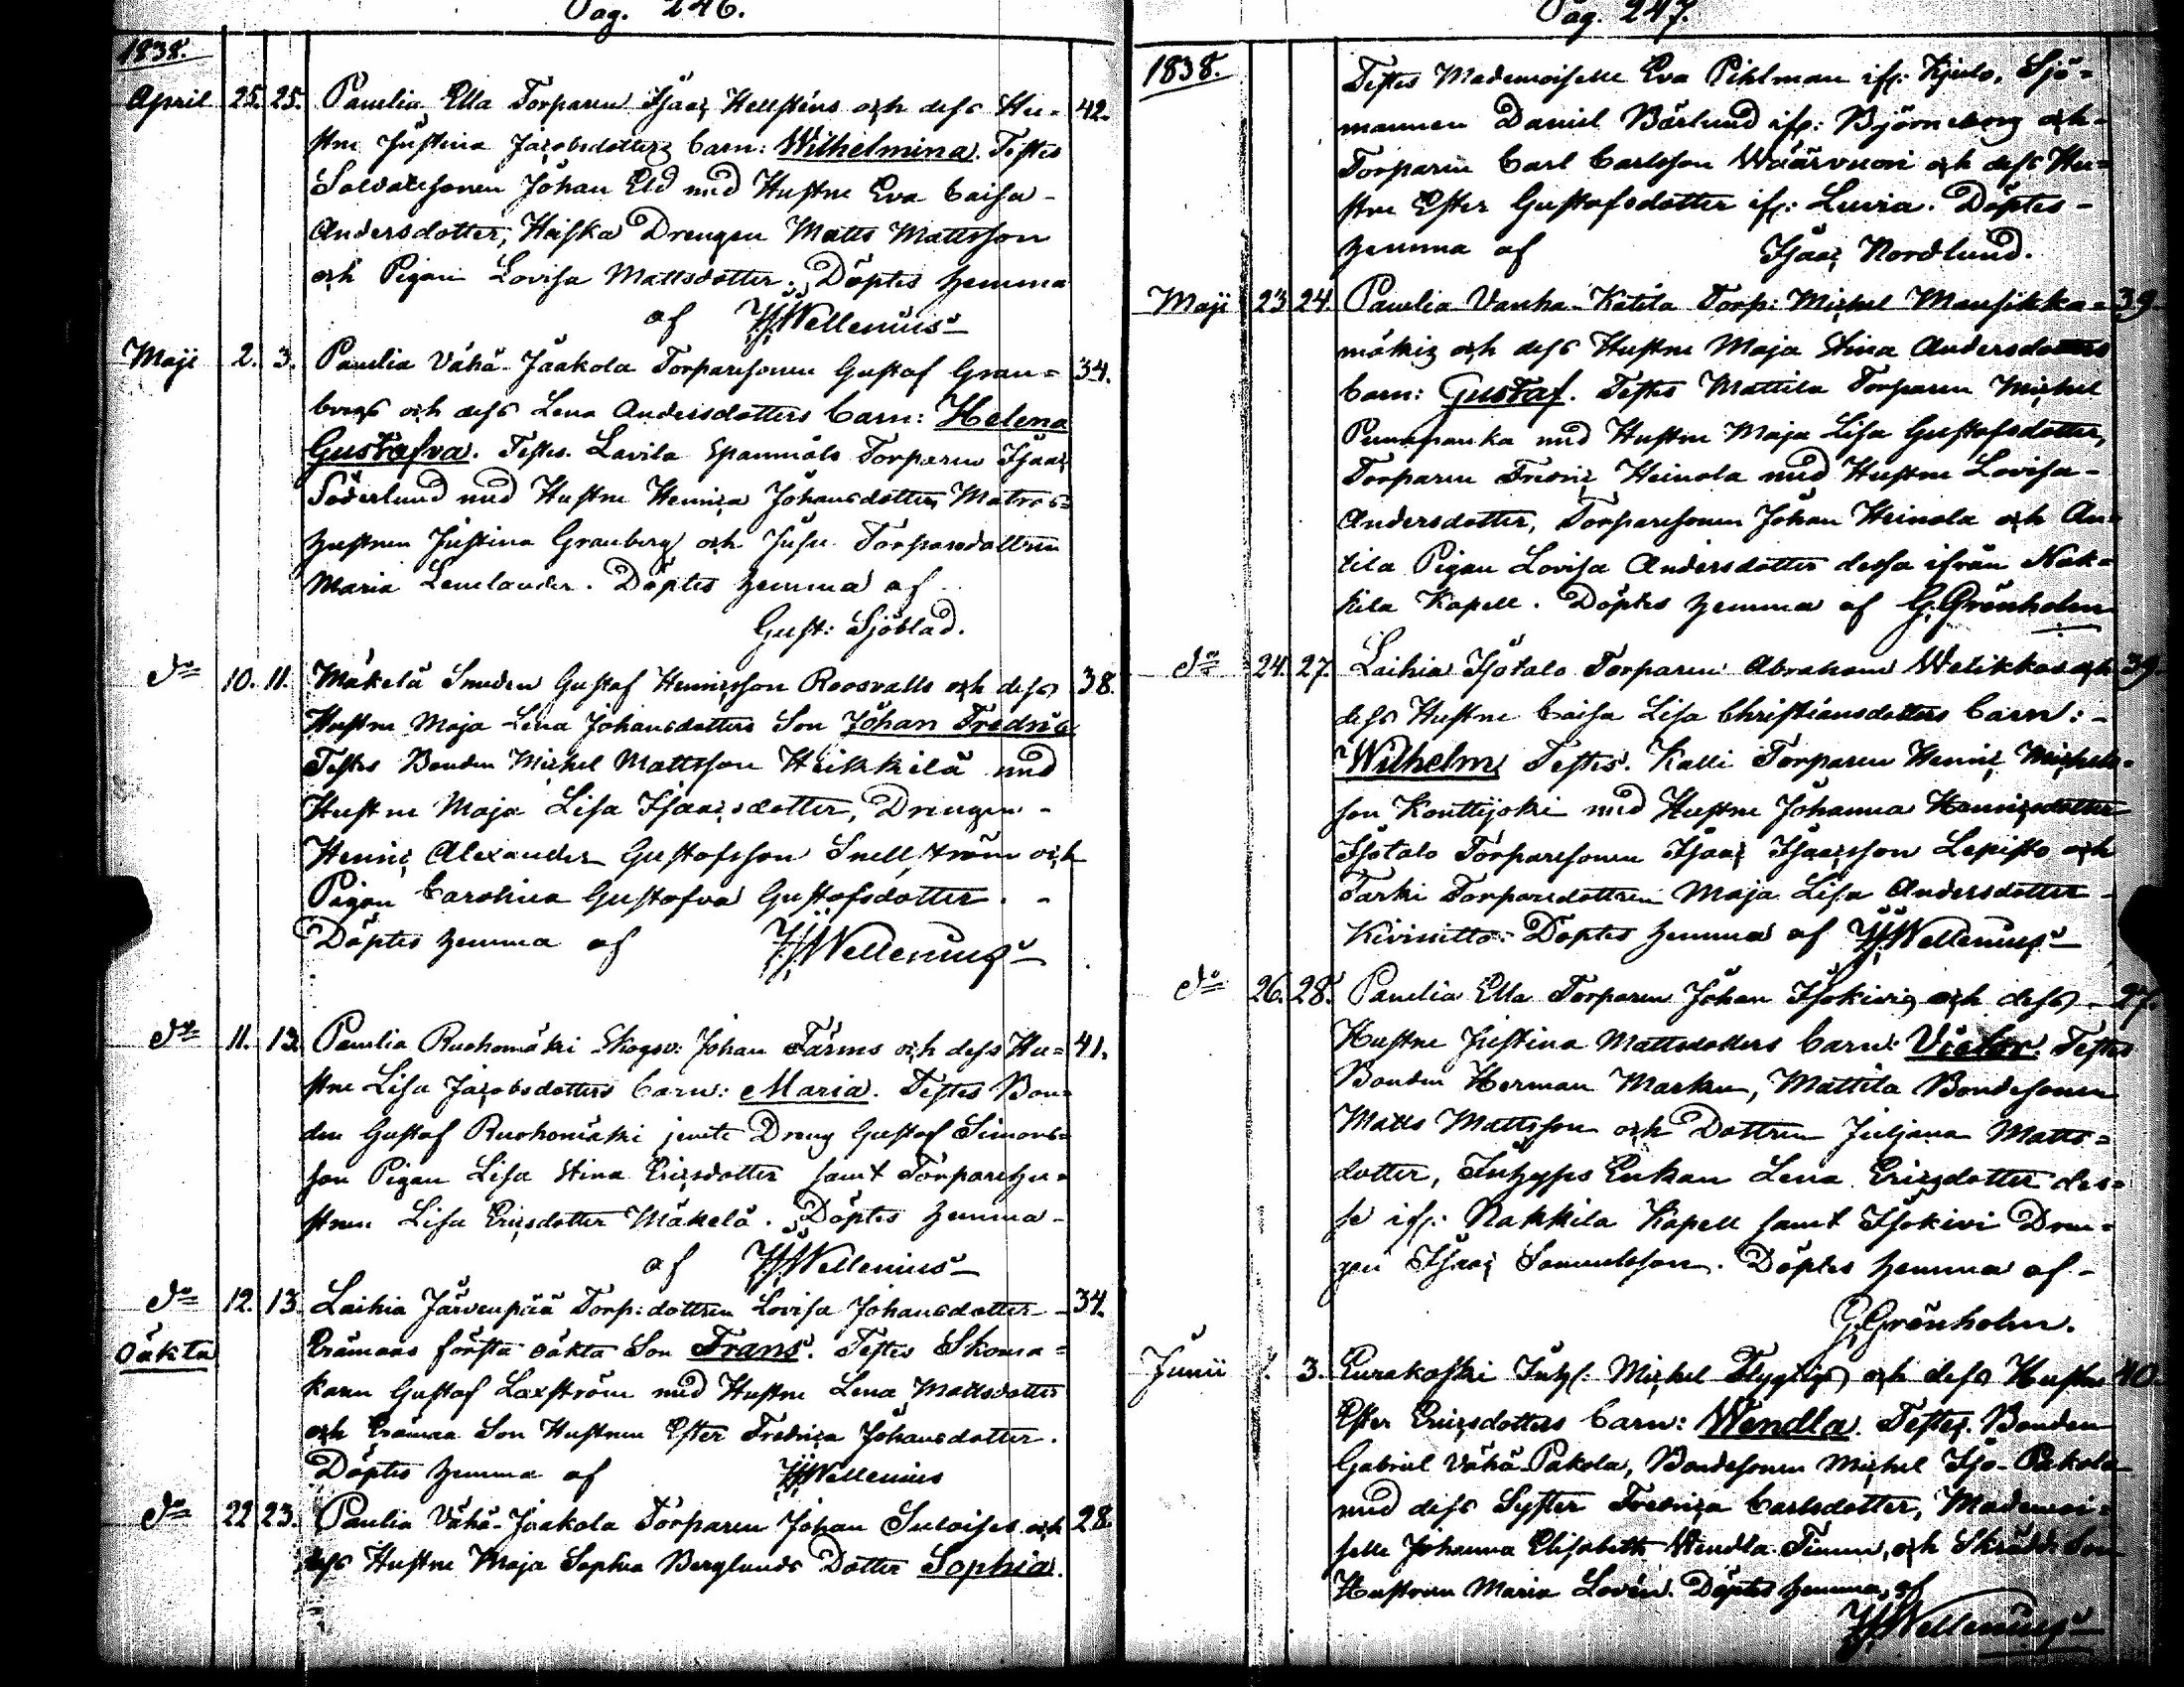 Pag. 246.
1838.
April 25. 25. Panelia Ella Torparen Isaac Hellsténs och dess Hu- 42.
stru Justina Jacobsdotters barn: Wilhelmina. Testes
Soldatesonen Johan Eld med Hustru Eva Caisa
Andersdotter, Haiska Drengen Matts Mattsson
och Pigan Lovisa Mattsdotter. Döptes hemma
af HWellenius
Maji 2. 3. Panelia Vähä-Jaakola Torparesonen Gustaf Gran- 34.
bergs och dess Lena Andersdotters barn: Helena
Gustafva. Testes. Lavila Torparen Isaac
Söderlund med Hustru Henrica Johansdotter, Matros-
hustrun Justina Granberg och Torparedottren
Maria Lemlander. Döptes hemma af
Gust: Sjöblad.
do 10. 11. Mäkelä Smeden Gustaf Henricsson Roosvalls och dess 38.
Hustru Maja Lena Johansdotters Son Johan Fredric
Testes Bonden Michel Mattsson Heikkilä med
Hustru Maja Lisa Isaacsdotter, Drengen
Henric Alexander Gustafsson Snellström och
Pigan Carolina Gustafva Gustafsdotter.
Döptes hemma af HWellenius
do 11. 13. Panelia Ruohomäki Skogsv: Johan Färms och dess Hu- 41.
stru Lisa Jacobsdotters barn: Maria. Testes Bon-
den Gustaf Ruohomäki jemte Dreng Gustaf Simons-
son Pigan Lisa Stina Ericsdotter samt Torparehu-
strun Lisa Ericsdotter Mäkelä. Döptes hemma
af HWellenius
do 12. 13. Laihia Järvenpää Torp: dottren Lovisa Johansdotter 34.
Oäkta Erämaas första oäkta Son Frans. Testes Skoma-
karen Gustaf Laxström med Hustru Lena Mattsdotter
och Erämaa Son Hustrun Ester Fredrica Johansdotter.
Döptes hemma af HWellenius
do 22. 23. Panelia Vähä-Jaakola Torparen Johan Suloises och 28.
dess Hustru Maja Sophia Berglunds Dotter Sophia.
Pag. 247.
1838.
Testes Mademoiselle Eva Pihlman ifr: Kjulo, Sjö-
mannen Daniel Bärlund ifr: Björneborg och
Torparen Carl Carlsson Waärvuori och dess Hu-
stru Ester Gustafsdotter ifr: Luvia. Döptes
hemma af Isaac Nordlund.
Maji 23 24. Panelia Vanha-Katila Torp: Michel Mansikka- 39
mäkis och dess Hustru Maja Stina Andersdotters
barn: Gustaf. Testes Mattila Torparen Michel
Punapauka med Hustru Maja Lisa Gustafsdotter,
Torparen Fredric Heinola med Hustru Lovisa
Andersdotter, Torparesonen Johan Heinola och An-
tila Pigan Lovisa Andersdotter dessa ifrån Nak-
kila Kapell. Döptes hemma af G. Grönholm
do 24. 27. Laihia Isotalo Torparen Abraham Welikkas och 39.
dess Hustru Caisa Lisa Christiansdotters barn:
Wilhelm Testes. Kalli Torparen Henric Michels-
son Kouttijoki med Hustru Johanna Henricsdotter
Isotalo Torparesonen Isaac Isaacsson Lepistö och
Tarki Torparedottren Maja Lisa Andersdotter
Kiviniitto. Döptes hemma af HWellenius
do 26. 28. Panelia Ella Torparen Johan Isokivis och dess 27.
Hustru Justina Mattsdotters barn: Victor. Testes
Bonden Herman Markun, Mattila Bondesonen
Matts Mattsson och Dottren Juljana Matts-
dotter, Inhyses Enkan Lena Ericsdotter des-
se ifr: Nakkila Kapell samt Isokivi Dren-
gen Isaac Samuelsson. Döptes hemma af
G. Grönholm.
Junii 1. 3. Eurakoski Inh: Michel Flygtigs och dess Hustru 40.
Ester Ericsdotters barn: Wendla. Testes. Bonden
Gabriel Vähä-Pakola, Bondesonen Michel Iso-Pakola
med dess Syster Fredrica Carlsdotter, Mademoi-
selle Johanna Elisabeth Wendla och Skrädd:
Hustrun Maria Lovén. Döptes hemma af
HWellenius